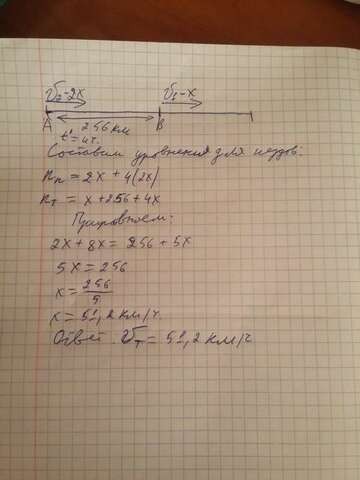 V₂-2x V₁-x
A 256 км B
t'=4ч.
Составим уровнения для поездов:
Rп = 2x + 4(2x)
Rт = x + 256 + 4x
Прировняем:
2x + 8x = 256 + 5x
5x = 256
x = 256/5
x = 51,2 км/ч.
Ответ: Vт = 51,2 км/ч